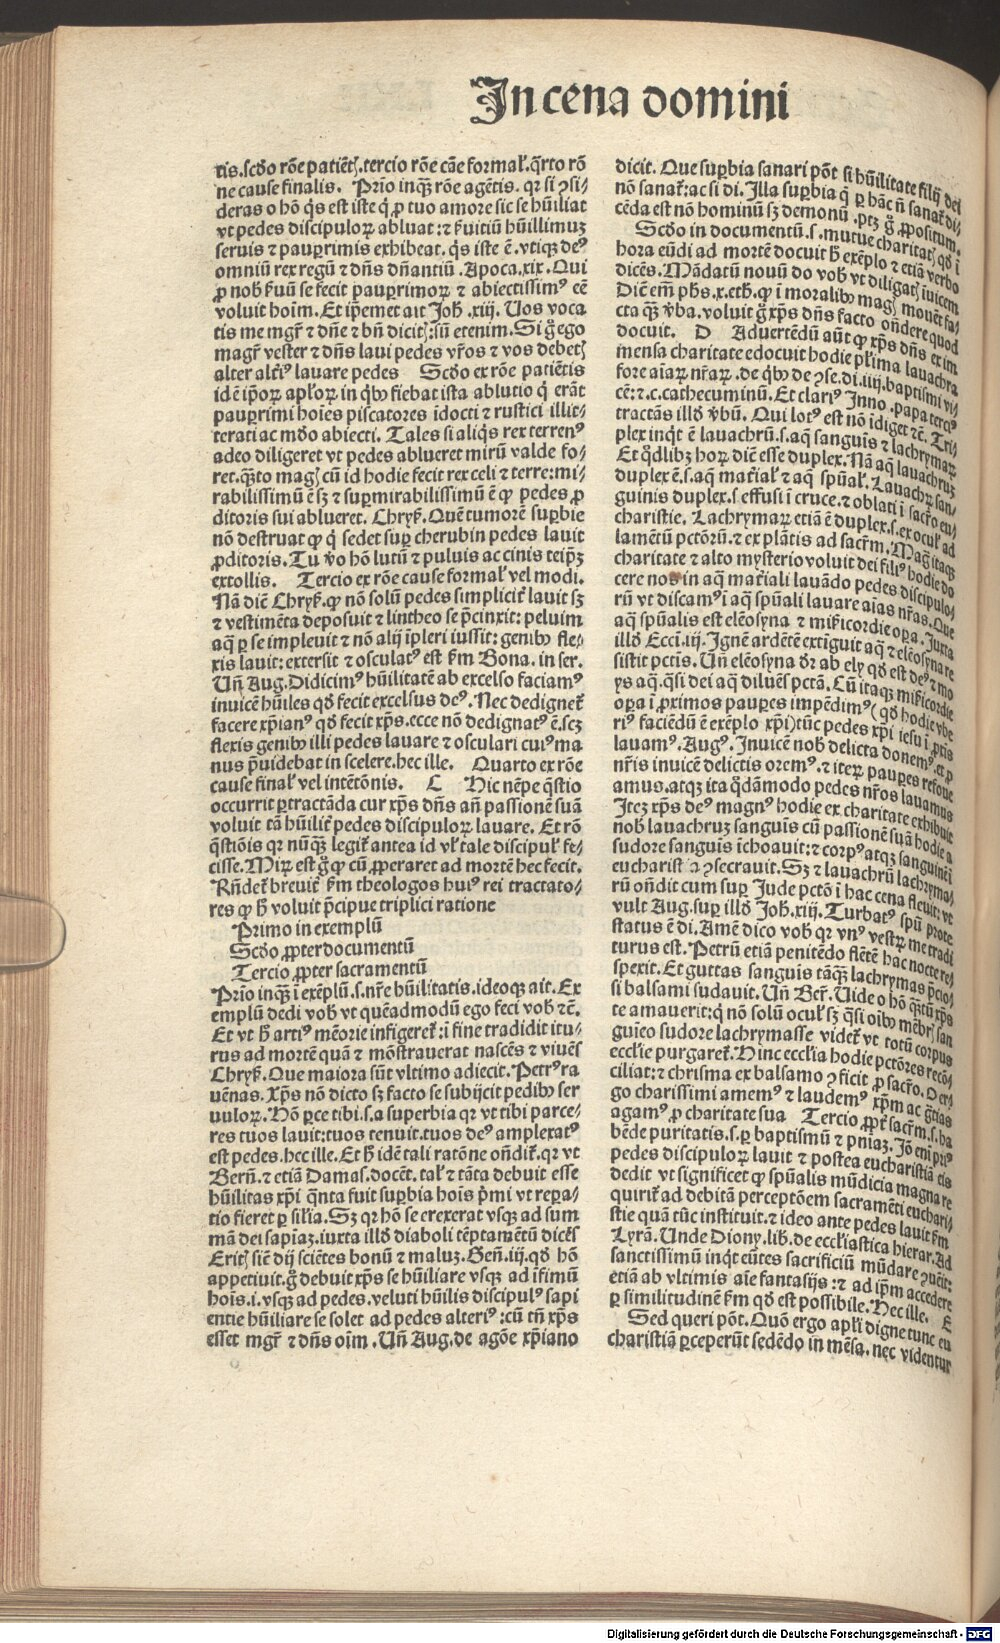 In cena domini
tis. scd̕o rōe patiēt̕. tercio rōe cāe formal̕. q̄rto rō
ne cause finalis. Prio inqꝫ rōe agētis. qr si ꝯsi/
deras o hō q̄s est iste q̄ ꝓ tuo amore sic se hūiliat
vt pedes discipuloꝝ abluat: ⁊ ẜuitiū hūillimuꝫ
seruis ⁊ paupꝑrimis exhibeat. q̄s iste ē. vtiqꝫ deꝰ
omniū rex regū ⁊ dn̄s dn̄antiū. Apoca. xix. Qui
ꝓ nob̕ ẜuū se fecit pauꝑrimoꝝ ⁊ abiectissimꝰ eē
voluit hoīm. Et ip̄emet ait Joh̕. xiij. Uos voca
tis me mgr̄ ⁊ dn̄e ⁊ bn̄ dicit̕: sū etenim. Si g̊ ego
magr̄ vester ⁊ dn̄s laui pedes vr̄os ⁊ vos debet̕
alter alt̕iꝰ lauare pedes Scd̕o ex rōe patiētis
idē ip̄oꝝ apl̕oꝝ in q̄bꝰ fiebat ista ablutio q̄ erāt
pauꝑrimi hoīes piscatores idocti ⁊ rustici illit/
terati ac md̕o abiecti. Tales si aliq̄s rex terrenꝰ
adeo diligeret vt pedes ablueret mirū valde fo/
ret. qn̄to mag̕ cū id hodie fecit rex celi ⁊ terre: mi/
rabilissimū ē sꝫ ⁊ suꝑmirabilissimū ē qꝙ pedes ꝓ
ditoris sui ablueret. Chryẜ. Quē tumorē suꝑbie
nō destruat ꝙ q̄ sedet suꝑ cherubin pedes lauit
ꝓditoris. Tu v̄o hō lutū ⁊ puluis ac cinis teip̄ꝫ
extollis. Tercio ex rōe cause formal̕ vel modi.
Nā diē Chryẜ. ꝙ nō solū pedes simplicit̕ lauit sꝫ
⁊ vestimēta deposuit ⁊ lintheo se p̄cinxit: peluim
aq̄ ꝑ se impleuit ⁊ nō alij īpleri iussit: genibꝰ fle/
xis lauit: extersit ⁊ osculatꝰ est ẜm Bona. in ser.
Un̄ Aug. Didicimꝰ hūilitatē ab excelso faciamꝰ
inuicē hūiles qd̕ fecit excelsus deꝰ. Nec dedignet̕
facere xp̄ianꝰ qd̕ fecit xp̄s. ecce nō dedignatꝰ ē. scꝫ
flexis genibꝰ illi pedes lauare ⁊ osculari cuiꝰ ma
nus p̄uidebat in scelere. hec ille. Quarto ex rōe
cause final̕ vel intētōnis. C Hic nēpe q̄stio
occurrit ꝑtractāda cur xp̄s dn̄s an̄ passionē suā
voluit tā hūilit̕ pedes discipuloꝝ lauare. Et rō
q̄stiōis qr nūqꝫ legit̕ antea id vl̕ tale discipul̕ fe/
cisse. Miꝝ est g̊ ꝙ cū ꝓꝑeraret ad mortē hec fecit.
Rn̄det̕ breuit̕ ẜm theologos huiꝰ rei tractato/
res ꝙ h̕ voluit p̄cipue triplici ratione
Primo in exemplū
Scd̕o ꝓpter documentū
Tercio ꝓpter sacramentū
Prio inqꝫ ī exēplū. s. nr̄e hūilitatis. ideoqꝫ ait. Ex
emplū dedi vob̕ vt quēadmodū ego feci vob̕ ⁊c̄.
Et vt h̕ artiꝰ mēorie infigeret̕: ī fine tradidit itu/
rus ad mortē quā ⁊ mōstrauerat nascēs ⁊ viuēs
Chryẜ. Que maiora sūt vltimo adiecit. Petrꝰ ra
uēnas. Xp̄s nō dicto sꝫ facto se subijcit pedibꝰ ser
uuloꝝ. Hō ꝑce tibi. s. a superbia qr vt tibi parce/
res tuos lauit: tuos tenuit. tuos deꝰ amplexatꝰ
est pedes. hec ille. Et h̕ idē tali ratōne on̄dit̕. qr vt
Bern̄. ⁊ etiā Damas. docēt. tal̕ ⁊ tāta debuit esse
hūilitas xp̄i q̄nta fuit suꝑbia hoīs p̄mi vt repa/
tio fieret ꝑ sil̕ia. Sꝫ qr hō se erexerat vsqꝫ ad sum
mā dei sapīaꝫ. iuxta illd̕ diaboli tēptamētū dicēs
Erit̕ sicē dij sciētes bonū ⁊ maluꝫ. Gen̄. iij. qd̕ hō
appetiuit. g̊ debuit xp̄s se hūiliare vsqꝫ ad īfimū
hoīs. i. vsqꝫ ad pedes. veluti hūilis discipulꝰ sapi
entie hūiliare se solet ad pedes alteriꝰ: cū tn̄ xp̄s
esset mgr̄ ⁊ dn̄s oīm. Un̄ Aug. de agōe xp̄iano
dicit. Que suꝑbia sanari pōt si hūilitate filij dei
nō sanat̕: ac si di. Illa suꝑbia q̄ ꝑ hāc n̄ sanat̕ di/
cēda est nō hominū sꝫ demonū. ptꝫ g̊ ꝓpositum.
Scd̕o in documentū. s. mutue charitat̕ qd̕ ī
hora eūdi ad mortē docuit h̕ exēplo ⁊ etiā verbo
dicēs. Mādatū nouū do vob̕ vt diligat̕ iuicem
Diē em̄ ph̕s. x. eth̕. ꝙ ī moralibꝰ mag̕ mouēt fa/
cta qꝫ v̄ba. voluit g̊ xp̄s dn̄s facto on̄dere quod
docuit. D Aduertēdū aūt ꝙ xp̄s dn̄s ex im
mensa charitate edocuit hodie pl̕ima lauachra
fore aīaꝝ nr̄aꝝ. de q̄bꝰ de ꝯse. di. iiij. baptismi vi/
cē: ⁊ .c. cathecuminū. Et clariꝰ Inno. papa tercꝰ
tractās illd̕ v̄bū. Qui lotꝰ est nō īdiget ⁊c̄. Tri/
plex inqt̕ ē lauachrū. s. aq̄ sanguīs ⁊ lachrymaꝝ
Et qd̕libꝫ hoꝝ diē esse duplex. Nā aq̄ lauachruꝫ
duplex ē. s. aq̄ mat̕ial̕ ⁊ aq̄ spūal̕. Lauachꝝ san/
guinis duplex. s. effusi ī cruce. ⁊ oblati ī sacr̄o eu/
charistie. Lachrymaꝝ etiā ē duplex. s. ex ocul̕ ad
lamētū pctōrū. ⁊ ex plātis ad sacr̄m. Mag̕ itaqꝫ
charitate ⁊ alto mysterio voluit dei filiꝰ hodie do
cere nos in aq̄ mat̕iali lauādo pedes discipulo/
rū vt discamꝰ ī aq̄ spūali lauare aīas nr̄as. Que
aq̄ spūalis est elēosyna ⁊ mīẜicordie oꝑa. Juxta
illd̕ Eccī. iij. Ignē ardētē extīguit aq̄ ⁊ elēosyna re
sistit pctīs. Un̄ elēosyna dr̄ ab ely qd̕ est deꝰ ⁊ mo
ys aq̄. q̄si dei aq̄ diluēs pctā. Cū itaqꝫ mīẜicordie
oꝑa ī ꝓximos pauꝑes impēdimꝰ (qd̕ hodie vbe
riꝰ faciēdū ē exēplo xp̄i) tūc pedes xp̄i iesu ī ꝓxīs
lauamꝰ. Augꝰ. Inuicē nob̕ delicta donemꝰ. et ꝓ
nr̄is inuicē delictis oremꝰ. ⁊ iteꝝ pauꝑes refoue
amus. atqꝫ ita qd̕āmodo pedes nr̄os lauamus
Iteꝫ xp̄s deꝰ magnꝰ hodie ex charitate exhibuit
nob̕ lauachruꝫ sanguīs cū passionē suā hodie a
sudore sanguīs īchoauit: ⁊ corpꝰ atqꝫ sanguinē ī
eucharistia ꝯsecrauit. Sꝫ ⁊ lauachrū lachryma/
rū on̄dit cum suꝑ Jude pctō ī hac cena fleuit: vt
vult Aug. suꝑ illd̕ Joh̕. xiij. Turbatꝰ spū prote
status ē di. Amē dico vob̕ qr vnꝰ vestꝝ me tradi
turus est. Petrū etiam penitēdo flētē hac nocte re/
spexit. Et guttas sanguīs tāqꝫ lachrymas p̄cio/
si balsami sudauit. Un̄ Ber̄. Uide o hō qn̄tū xp̄s
te amauerit: q̄ nō solū ocul̕ sꝫ q̄si oībꝰ mēbr̕ san
guīeo sudore lachrymasse videt̕ vt totū corpus
eccl̕ie purgaret̕. Hinc eccl̕ia hodie pctōres recō/
ciliat: ⁊ chrisma ex balsamo ꝯficit ꝓ sacr̄o. O er/
go charissimi amemꝰ ⁊ laudemꝰ xp̄m ac gr̄tias
agamꝰ ꝓ charitate sua Tercio ꝓpt̕ sacr̄m. s. ha
bēde puritatis. s. ꝑ baptismū ⁊ pn̄iaꝫ. Jō em̄ priꝰ
pedes discipuloꝝ lauit ⁊ postea eucharistiā eis
dedit vt significet ꝙ spūalis mūdicia magna re
quirit̕ ad debitā perceptōem sacramēti euchari/
stie quā tūc instituit. ⁊ ideo ante pedes lauit ẜm
Lyrā. Unde Diony. lib. de eccl̕iastica hierar. Ad
sanctissimū inqt̕ eūtes sacrificiū mūdare ꝯuēit:
etiā ab vltimis aīe fantasijs: ⁊ ad ip̄m accedere
ꝑ similitudinē ẜm qd̕ est possibile. Hec ille. E
Sed queri pōt. Quō ergo apl̕i digne tunc eu
charistiā ꝑceperūt sedēdo in mēsa. nec videntur
Digitalisierung gefördert durch die Deutsche Forschungsgemeinschaft - DFG